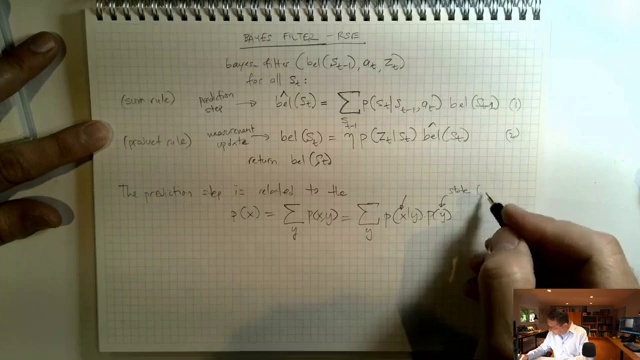 BAYES FILTER - RSE
bayes-filter (bel(S_{t-1}), a_t, Z_t)
for all S_t:
(sum rule) prediction step → b̂el(S_t) = Σ_{S_{t-1}} p(S_t|S_{t-1}, a_t) bel(S_{t-1}) (1)
(product rule) measurement update → bel(S_t) = η p(Z_t|S_t) b̂el(S_t) (2)
return bel(S_t)
The prediction step is related to the
p(x) = Σ_y p(x,y) = Σ_y p(x|y) p(y)
state (